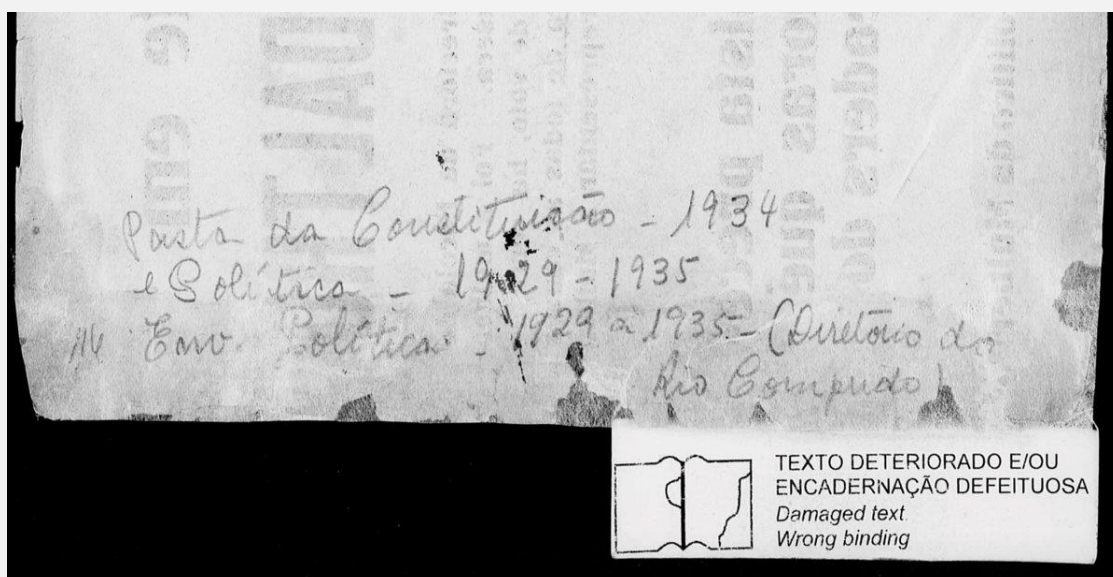 Pasta da Constituição - 1934
e Política - 1929 - 1935
Env. Política - 1929 a 1935 - (Diretório do
Rio Comprido)
TEXTO DETERIORADO E/OU
ENCADERNAÇÃO DEFEITUOSA
Damaged text
Wrong binding